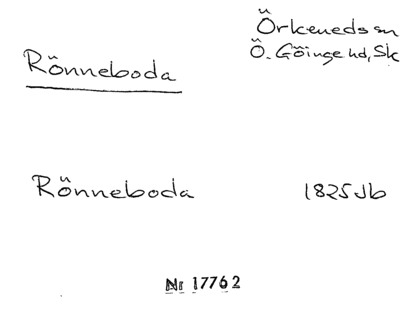 Örkeneds sn
Ö. Göinge hd, Sk
Rönneboda
Rönneboda 1825 Jb
Nr 17762